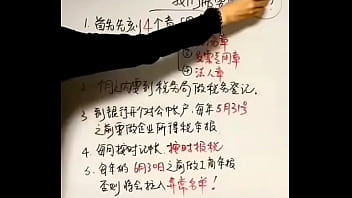 我们需要
1. 首先先刻4个章
章
③ 发票专用章
④ 法人章
2. 一个月之内要到税务局做税务登记。
3 到银行开个对公帐户，每年5月31号
之前要做企业所得税年报
4. 每月按时记帐，按时报税
5. 每年的6月30日之前做工商年报
否则将会拉入异常名单！